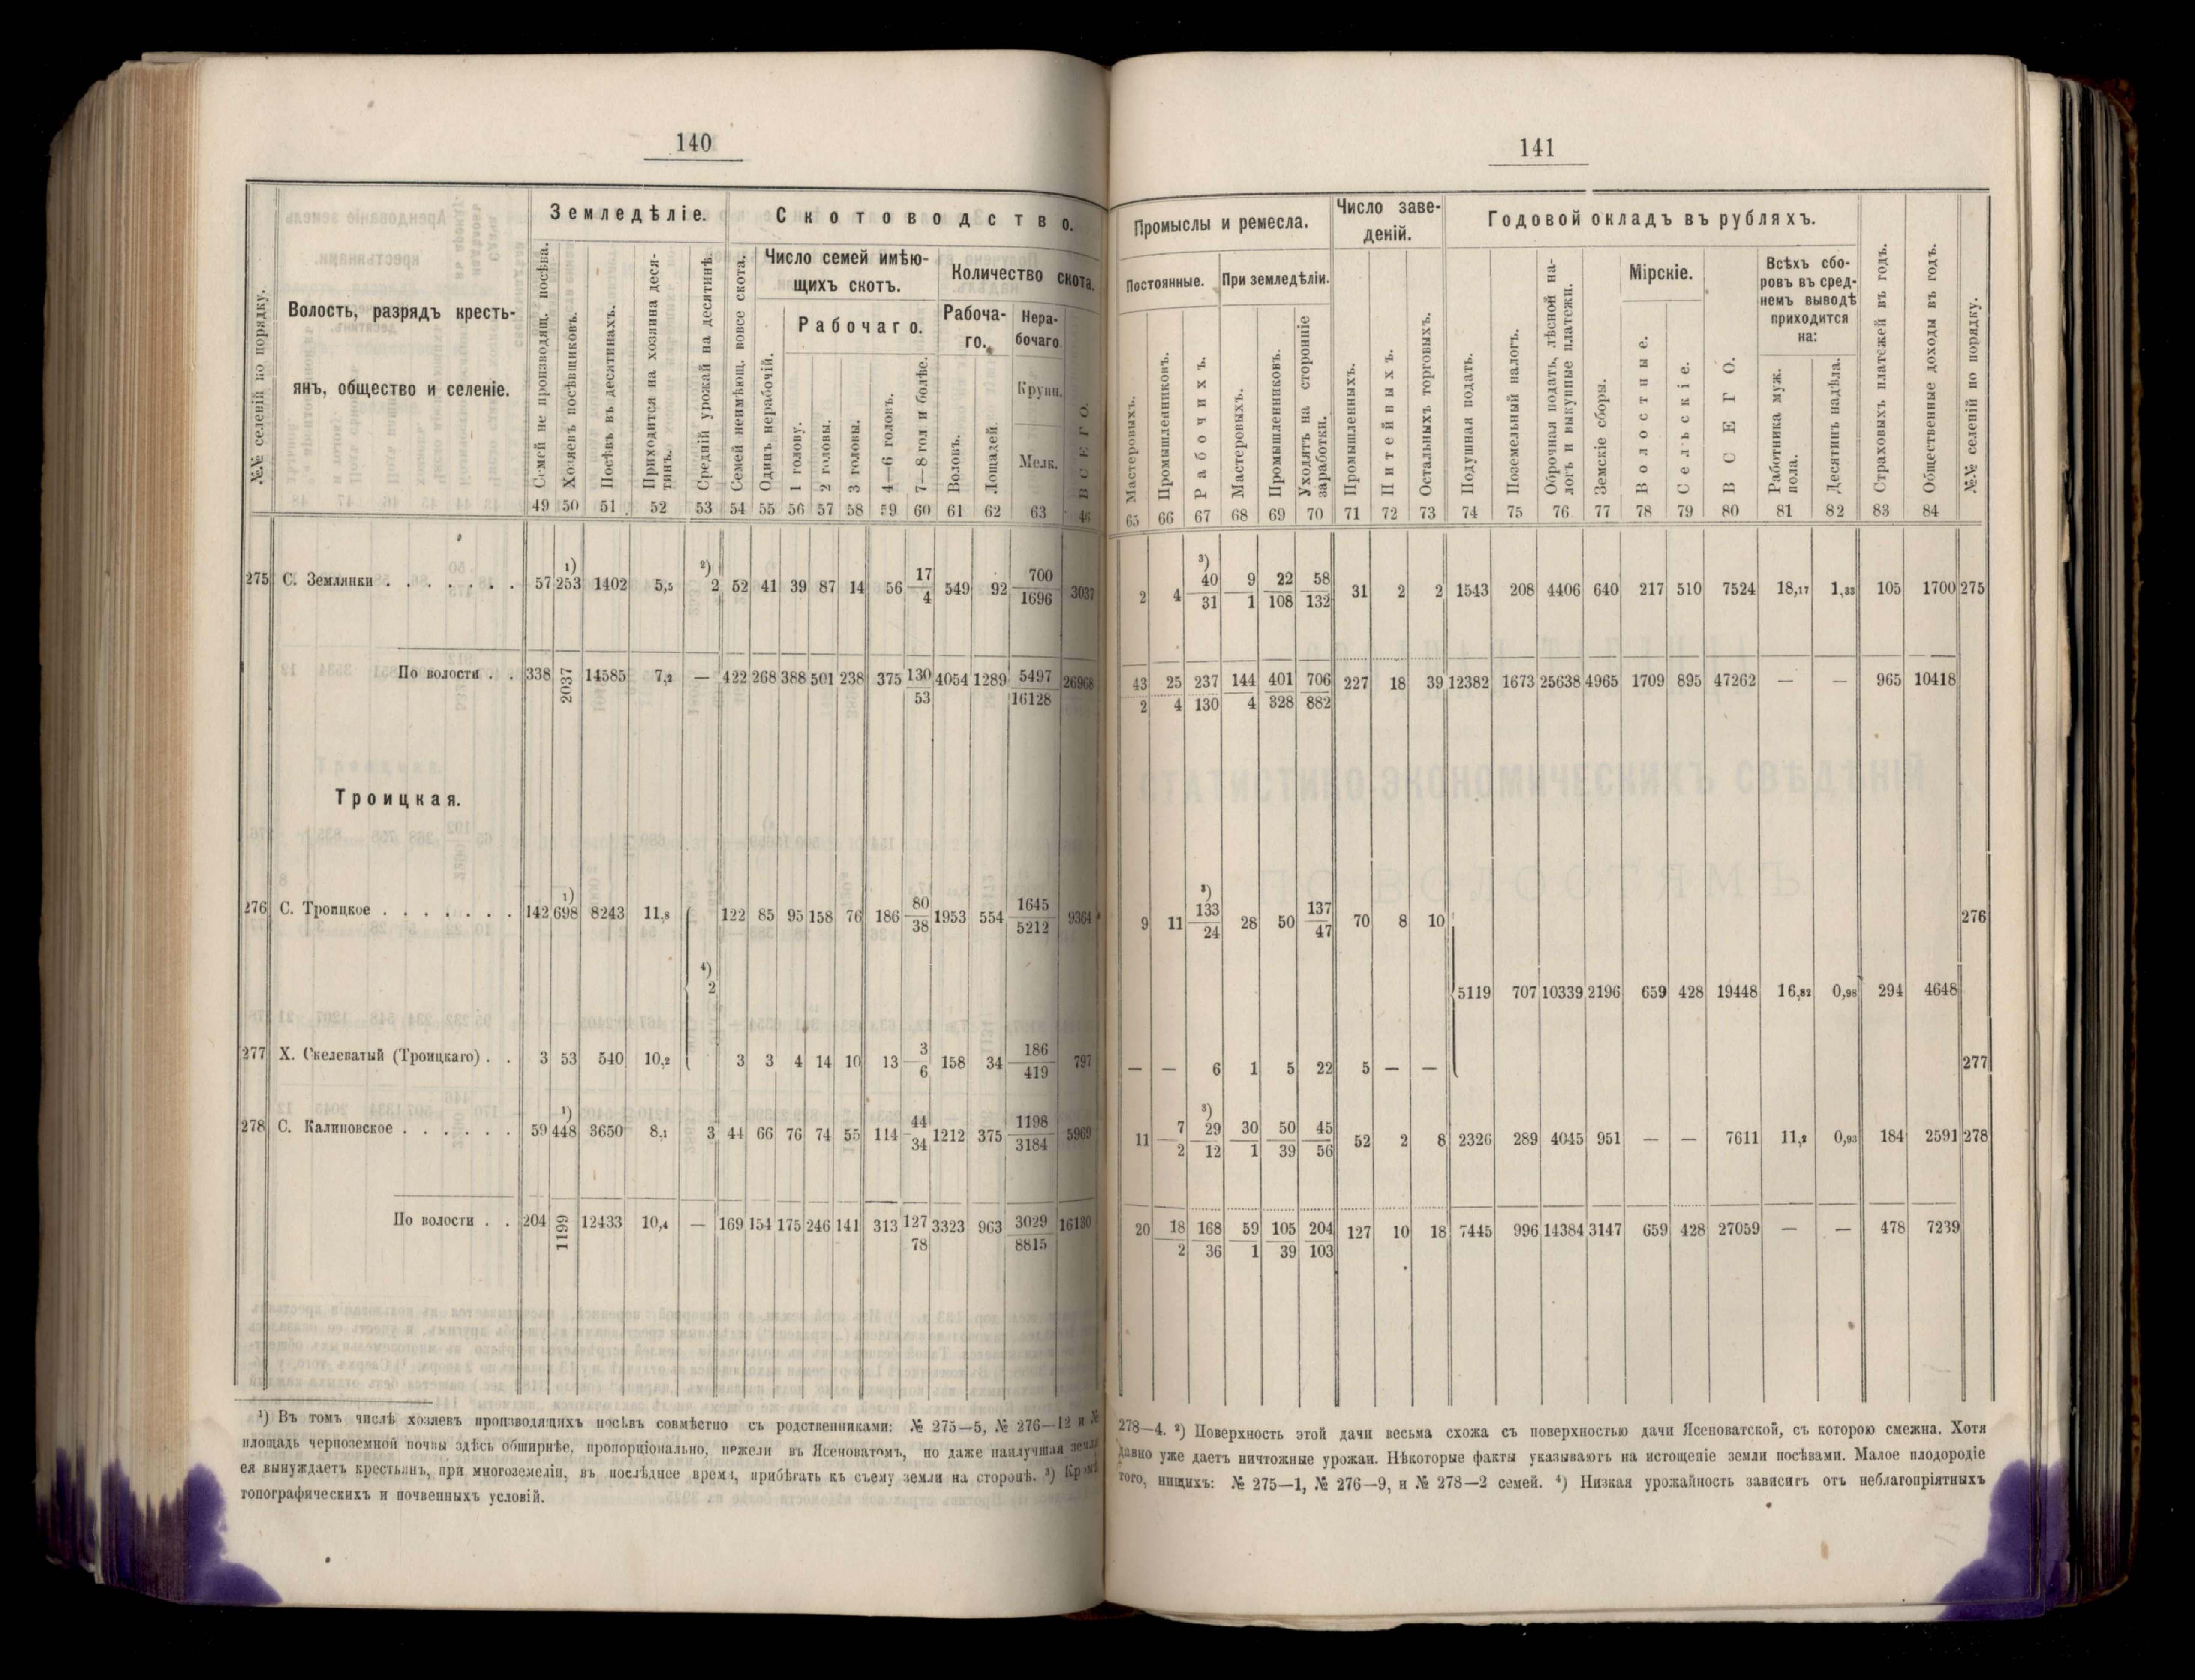 140
Земледѣліе. Скотоводство.
№№ селеній по порядку.
Волость, разрядъ кресть-
янъ, общество и селеніе.
Семей не производящ. посѣва.
Хозяевъ посѣвщиковъ.
Посѣвъ въ десятинахъ.
Приходится на хозяина деся-
тинъ.
Средній урожай на десятинѣ.
Семей неимѣющ. вовсе скота.
Число семей имѣю-
щихъ скотъ.
Одинъ нерабочій.
Рабочаго.
1 голову.
2 головы.
3 головы.
4—6 головъ.
7—8 гол и болѣе.
Количество скота.
Рабоча-
го.
Воловъ.
Лошадей.
Нера-
бочаго.
Крупн.
Мелк.
ВСЕГО.
49 50 51 52 53 54 55 56 57 58 59 60 61 62 63 46
275 С. Землянки . . . . . . . 57 ¹) 253 1402 5,5 ²) 2 52 41 39 87 14 56 17/4 549 92 700/1696 3037
По волости . . 338 2037 14585 7,2 — 422 268 388 501 238 375 130/53 4054 1289 5497/16128 26968
Троицкая.
276 С. Троицкое . . . . . . . 142 ¹) 698 8243 11,8 122 85 95 158 76 186 80/38 1953 554 1645/5212 9364
⁴) 2
277 Х. Скелеватый (Троицкаго) . . 3 53 540 10,2 3 3 4 14 10 13 3/6 158 34 186/419 797
278 С. Калиновское . . . . . . 59 ¹) 448 3650 8,1 3 44 66 76 74 55 114 44/34 1212 375 1198/3184 5969
По волости . . 204 1199 12433 10,4 — 169 154 175 246 141 313 127/78 3323 963 3029/8815 16130
¹) Въ томъ числѣ хозяевъ производящихъ посѣвъ совмѣстно съ родственниками: № 275—5, № 276—12 и №
площадь черноземной почвы здѣсь обширнѣе, пропорціонально, нежели въ Ясеноватомъ, но даже наилучшая земля
ея вынуждаетъ крестьянъ, при многоземеліи, въ послѣднее время, прибѣгать къ съему земли на сторонѣ. ³) Кромѣ
топографическихъ и почвенныхъ условій.
141
Промыслы и ремесла.
Число заве-
деній.
Годовой окладъ въ рубляхъ.
Постоянные. При земледѣліи.
Мастеровыхъ.
Промышленниковъ.
Рабочихъ.
Мастеровыхъ.
Промышленниковъ.
Уходятъ на сторонніе
заработки.
Промышленныхъ.
Питейныхъ.
Остальныхъ торговыхъ.
Подушная подать.
Поземельный налогъ.
Оброчная подать, лѣсной на-
логъ и выкупные платежи.
Земскіе сборы.
Мірскіе.
Волостные.
Сельскіе.
ВСЕГО.
Всѣхъ сбо-
ровъ въ сред-
немъ выводѣ
приходится
на:
Работника муж.
пола.
Десятинъ надѣла.
Страховыхъ платежей въ годъ.
Общественные доходы въ годъ.
№№ селеній по порядку.
65 66 67 68 69 70 71 72 73 74 75 76 77 78 79 80 81 82 83 84
2 4 ³) 40/31 9/1 22/108 58/132 31 2 2 1543 208 4406 640 217 510 7524 18,17 1,33 105 1700 275
43/2 25/4 237/130 144/4 401/328 706/882 227 18 39 12382 1673 25638 4965 1709 895 47262 — — 965 10418
9 11 ³) 133/24 28 50 137/47 70 8 10 276
5119 707 10339 2196 659 428 19448 16,82 0,98 294 4648
— — 6 1 5 22 5 — — 277
11 7/2 ³) 29/12 30/1 50/39 45/56 52 2 8 2326 289 4045 951 — — 7611 11,2 0,93 184 2591 278
20 18/2 168/36 59/1 105/39 204/103 127 10 18 7445 996 14384 3147 659 428 27059 — — 478 7239
278—4. ²) Поверхность этой дачи весьма схожа съ поверхностью дачи Ясеноватской, съ которою смежна. Хотя
давно уже даетъ ничтожные урожаи. Нѣкоторые факты указываютъ на истощеніе земли посѣвами. Малое плодородіе
того, нищихъ: № 275—1, № 276—9, и № 278—2 семей. ⁴) Низкая урожайность зависитъ отъ неблагопріятныхъ